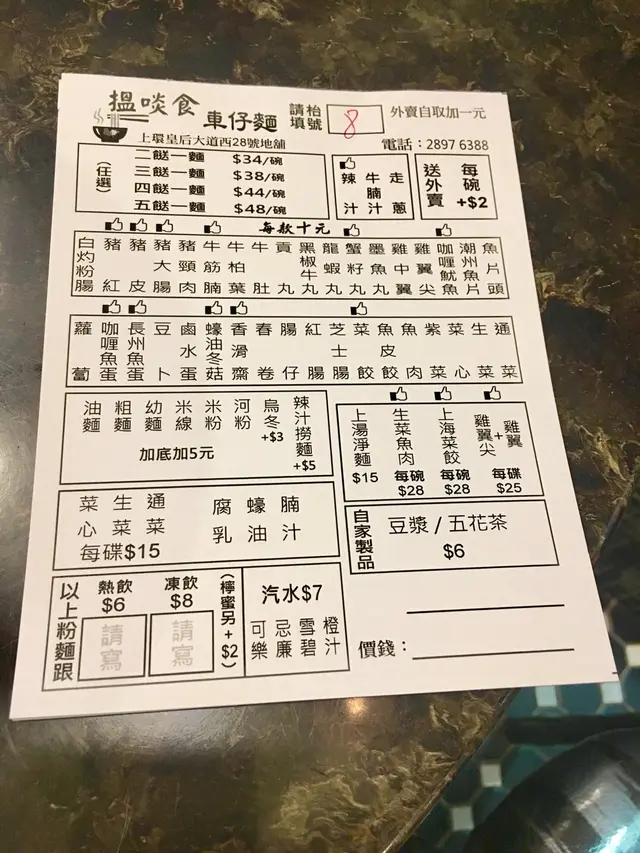 搵啖食 車仔麵
請填枱號 8
外賣自取加一元
上環皇后大道西28號地舖
電話：2897 6388
(任選)
二餸一麵 $34/碗
三餸一麵 $38/碗
四餸一麵 $44/碗
五餸一麵 $48/碗
辣汁
牛腩汁
走蔥
送外賣
每碗+$2
每款十元
白灼粉腸
豬紅
豬皮
豬大腸
豬頸肉
牛筋腩
牛柏葉
牛肚
貢丸
黑椒牛丸
龍蝦丸
蟹籽丸
墨魚丸
雞中翼
雞翼尖
咖喱魷魚
潮州魚片
魚片頭
蘿蔔
咖喱魚蛋
長州魚蛋
豆卜
鹵水蛋
蠔油冬菇
香滑齋
春卷
腸仔
紅腸
芝士腸
菜餃
魚皮餃
魚肉
紫菜
菜心
生菜
通菜
油麵
粗麵
幼麵
米線
米粉
河粉
烏冬+$3
辣汁撈麵+$5
加底加5元
上湯淨麵 $15
生菜魚肉 每碗 $28
上海菜餃 每碗 $28
雞翼尖+雞翼 每碟 $25
菜心
生菜
通菜
每碟$15
腐乳
蠔油
腩汁
自家製品
豆漿 / 五花茶
$6
以上粉麵跟
熱飲 $6
請寫
凍飲 $8
請寫
(檸蜜另+$2)
汽水$7
可樂
忌廉
雪碧
橙汁
價錢：